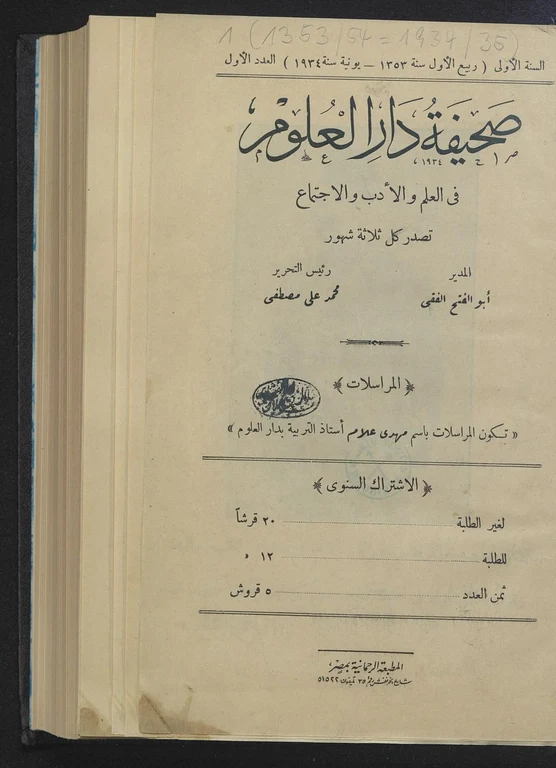 1 (1353/54 = 1934/35)
السنة الأولى ( ربيع الأول سنة ١٣٥٣ — يونية سنة ١٩٣٤ ) العدد الأول
صحيفة دار العلوم
١٩٣٤
فى العلم والأدب والاجتماع
تصدر كل ثلاثة شهور
المدير
أبو الفتح الفقى
رئيس التحرير
محمد على مصطفى
﴿ المراسلات ﴾
« تكون المراسلات باسم مهدى علام أستاذ التربية بدار العلوم »
﴿ الاشتراك السنوى ﴾
لغير الطلبة ٢٠ قرشاً
للطلبة ١٢ »
ثمن العدد ٥ قروش
المطبعة الرحمانية بمصر
شارع الخرنفش رقم ٣٥ تليفون ٥١٥٢٢